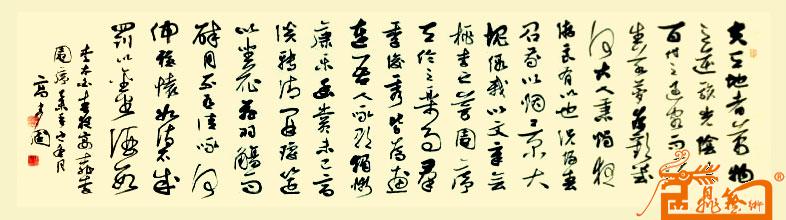 夫天地者萬物
之逆旅光陰者
百代之過客而浮
生若夢為歡幾
何古人秉燭夜
遊良有以也況陽春
召我以煙景大
塊假我以文章會
桃李之芳園序
天倫之樂事群
季俊秀皆為惠
連吾人詠歌獨慚
康樂幽賞未已高
談轉清開瓊筵
以坐花飛羽觴而
醉月不有佳詠何
伸雅懷如詩不成
罰以金谷酒數
李太白春夜宴桃李
園序